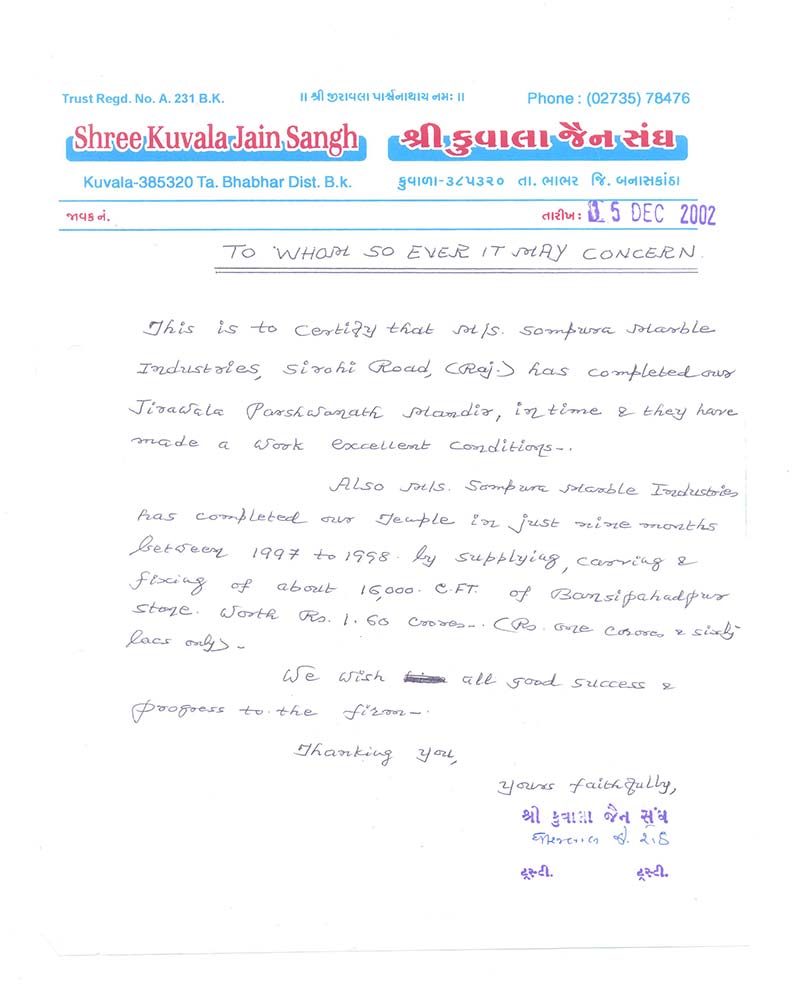 Trust Regd. No. A. 231 B.K. ॥ શ્રી જીરાવલા પાર્શ્વનાથાય નમઃ ॥ Phone : (02735) 78476
Shree Kuvala Jain Sangh શ્રી કુવાલા જૈન સંઘ
Kuvala-385320 Ta. Bhabhar Dist. B.k. કુવાળા-૩૮૫૩૨૦ તા. ભાભર જિ. બનાસકાંઠા
જાવક નં. તારીખ : 15 DEC 2002
TO WHOM SO EVER IT MAY CONCERN.
This is to certify that M/s. Sompura Marble
Industries, Sirohi Road, (Raj.) has completed our
Jirawala Parshwanath Mandir, in time & they have
made a work excellent conditions-.
Also M/s. Sompura Marble Industries
has completed our Temple in just nine months
between 1997 to 1998. by supplying, carving &
fixing of about 16,000. C.FT. of Bansipahadpur
stone. Worth Rs. 1.60 crores-. (Rs. one corores & sixty
lacs only)-
We wish all good success &
progress to the firm-.
Thanking you,
yours faithfully,
શ્રી કુવાલા જૈન સંઘ
ટ્રસ્ટી. ટ્રસ્ટી.